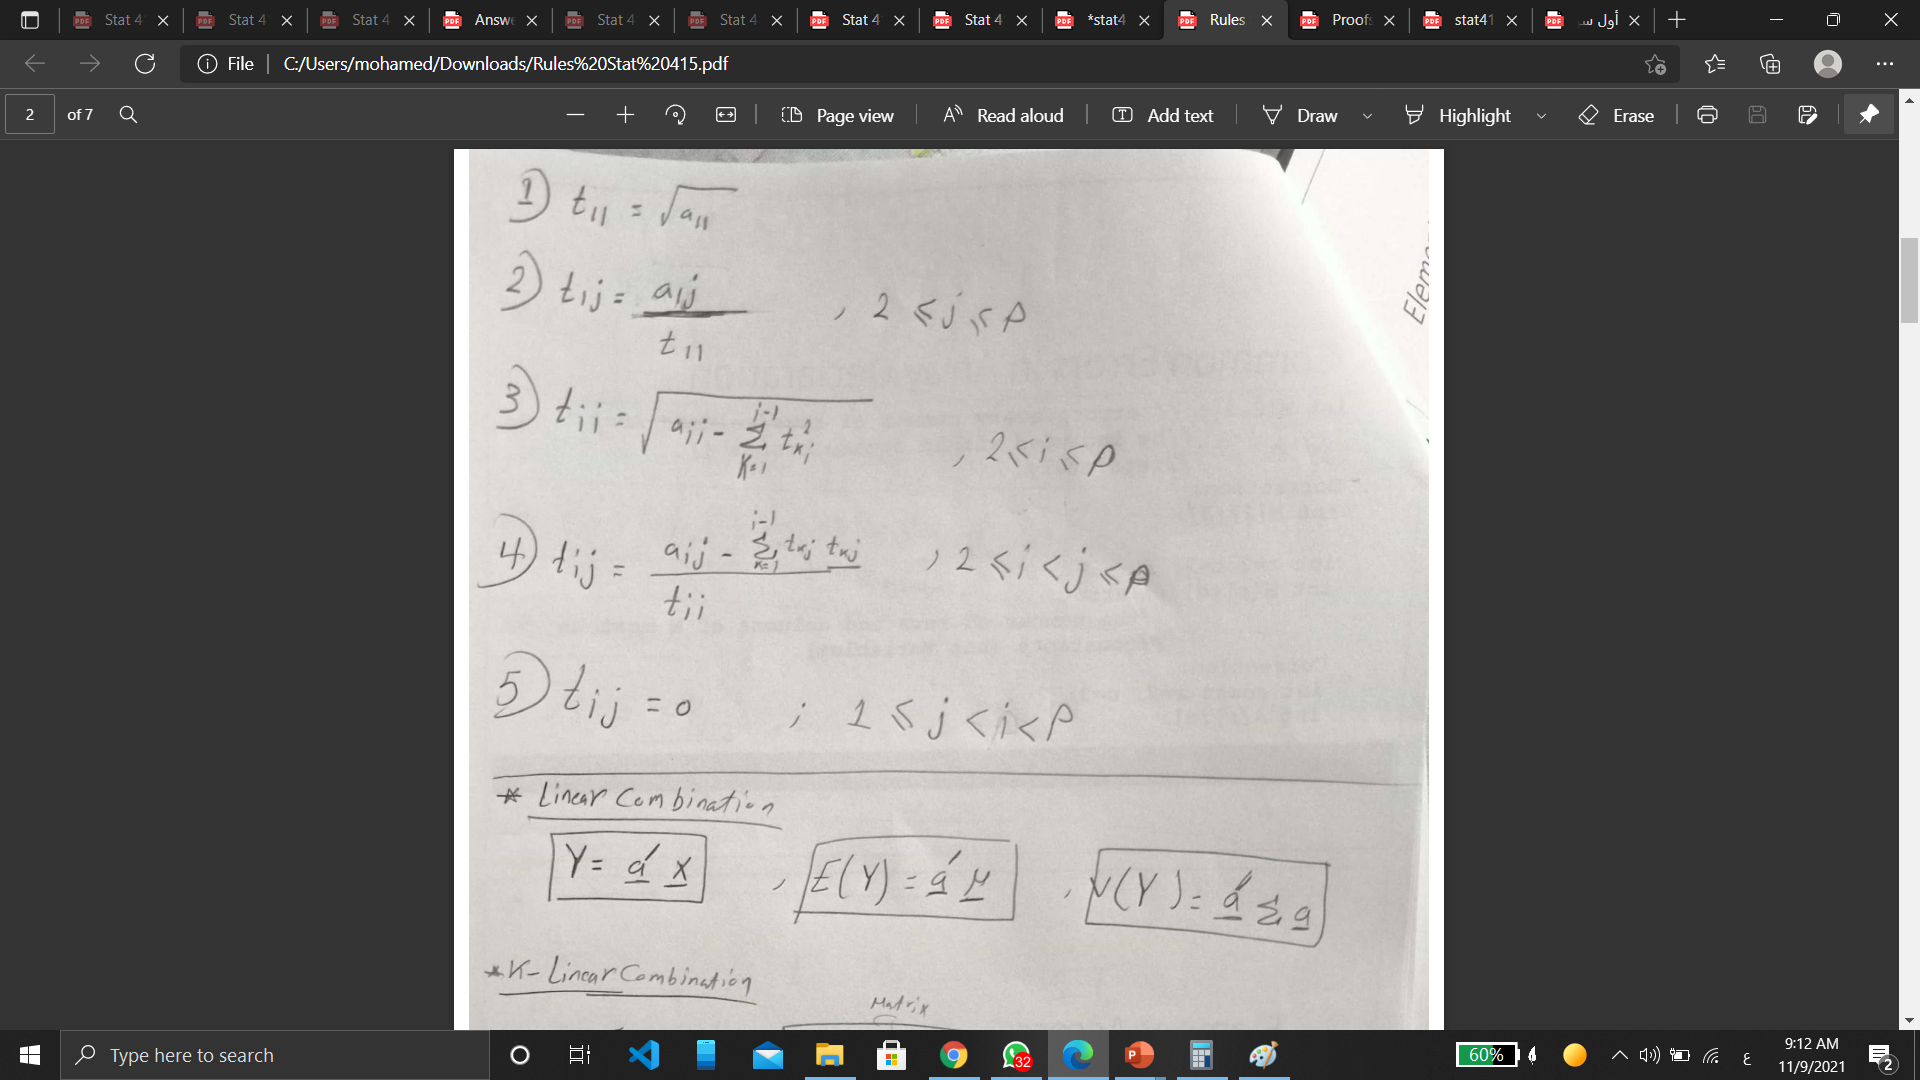 Stat 4
Stat 4
Stat 4
Answ
Stat 4
Stat 4
Stat 4
Stat 4
*stat4
Rules
Proofs
stat41
أول س
File
C:/Users/mohamed/Downloads/Rules%20Stat%20415.pdf
2 of 7
Page view
Read aloud
Add text
Draw
Highlight
Erase
1) t11 = √a11
2) t1j = a1j / t11 , 2 ≤ j ≤ p
3) tii = √(aii - Σ_{k=1}^{i-1} tki²) , 2 ≤ i ≤ p
4) tij = (aij - Σ_{k=1}^{i-1} tkj tkj) / tii , 2 ≤ i < j ≤ p
5) tij = 0 ; 1 ≤ j < i < p
Elem
* Linear Combination
Y = a' x , E(Y) = a' μ , V(Y) = a' Σ a
* K- Linear Combination
Matrix
Type here to search
32
60%
ع
9:12 AM
11/9/2021
2